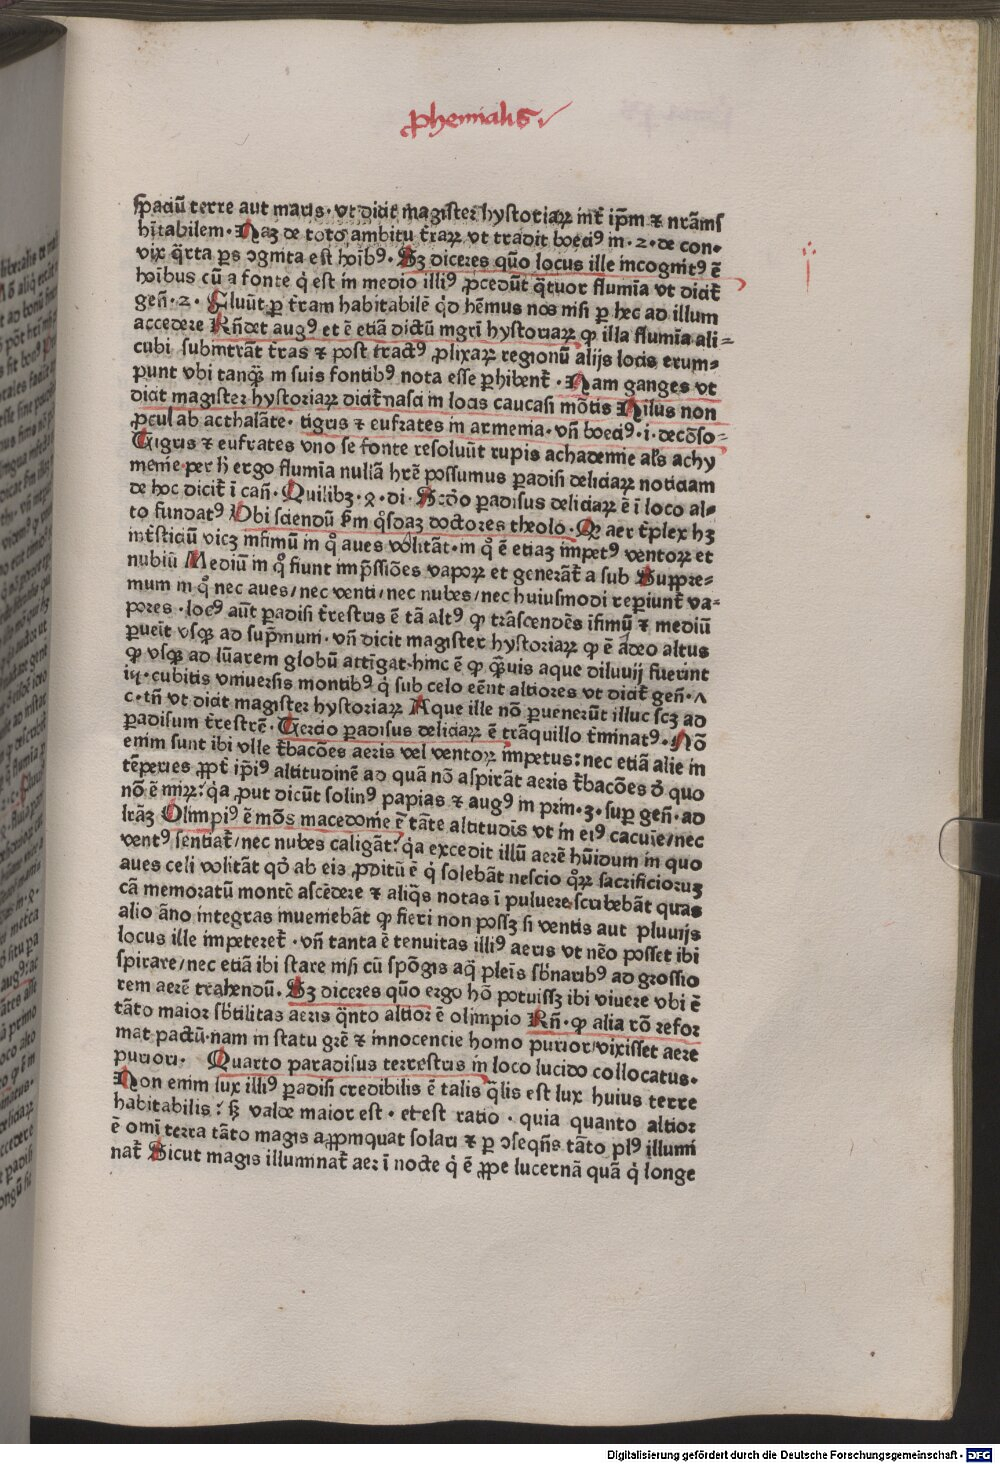 ꝓhemialis
spaciū terre aut maris · vt dicit magister hystoriaꝝ int̄ ip̄m ⁊ nr̄ams
hītabilem · Naꝫ de toto ambitu t̄raꝝ vt tradit boeciꝰ in · 2 · de con⸗
vix q̄rta ꝑs ↄgnita est hoībꝰ · Sꝫ diceres quō locus ille incognitꝰ ē
hoībus cū a fonte q̇ est in medio illiꝰ ꝓcedūt q̄tuor flumīa vt dicit̄
geñ · 2 · Fluūt ꝑ t̄ram habitabilē q̇d hēmus nos nisi ꝑ hec ad illum
accedere Rñdet augꝰ et ē etiā dictū mgr̄i hystoriaꝝ ꝙ illa flumīa ali⸗
cubi subintrāt t̄ras ⁊ post tractꝰ ꝓlixaꝝ regionū alijs locis erum⸗
punt vbi tanq̄ꝫ in suis fontibꝰ nota esse ꝑhibent̄ · Nam ganges vt
dicit magister hystoriaꝝ dicit̄ nasci in locis caucasi mōtis Nilus non
ꝓcul ab acthalāte · tigris ⁊ eufrates in armenia · vñ boeciꝰ · i · de cōso⸗
Tigris ⁊ eufrates vno se fonte resoluūt rupis achademie al's achy
menie per h̄ ergo flumīa nullā hr̄e possumus ꝑadisi deliciaꝝ noticiam
de hoc dicit̄ ī cañ · Quilibꝫ · ⁊ · di · Scd̄o ꝑadisus deliciaꝝ ē ī loco al⸗
to fundatꝰ Vbi sciendū s̄m q̊sdaꝫ doctores theolo · Qꝫ aer t̄plex hꝫ
int̄sticiū vicꝫ infimū in q̊ aues volitāt · in q̊ ē etiaꝫ impetꝰ ventoꝝ et
nubiū Mediū in q̊ fiunt imp̄ssiōes vapoꝝ et generāt̄ a sub Suppre⸗
mum in q̊ nec aues / nec venti / nec nubes / nec huiusmodi reꝑiunt̄ va⸗
pores · locꝰ aūt ꝑadisi t̄restris ē tā altꝰ ꝙ trāscendēs īfimū ⁊ mediū
ꝑueīt vsqꝫ ad sup̄mum · vñ dicit magister hystoriaꝝ ꝙ ē adeo altus
ꝙ vsqꝫ ad lūarem globū attīgat · hinc ē ꝙ q̄ꝫuis aque diluuij fuerint
iij · cubitis vniuersis montibꝰ q̇ sub celo eēnt altiores vt dicit̄ geñ · ʌ
c · tñ vt dicit magister hystoriaꝝ Aque ille nō ꝑuenerūt illuc scꝫ ad
ꝑadisum t̄restrē · Tercio ꝑadisus deliciaꝝ ē trāquillo t̄minatꝰ · Nō
enim sunt ibi vlle t̄bacōes aeris vel ventoꝝ impetus : nec etiā alie in
tēperies ꝓpt̄ ip̄iꝰ altitudinē ad quā nō aspirāt aeris t̄bacōes ð quo
nō ē mirꝝ : q̇a ꝓut dicūt solinꝰ papias ⁊ augꝰ in prin · 3 · suꝑ geñ · ad
lrāꝫ Olimpiꝰ ē mōs macedonie ē tāte altitudīs vt in eiꝰ cacuīe / nec
ventꝰ sentiat̄ / nec nubes caligāt : q̇a excedit illū aerē hūidum in quo
aues celi volitāt qd̄ ab eis ꝓditū ē q̇ solebāt nescio q̊ꝝ sacrificioruꝫ
cā memoratū montē ascēdere ⁊ aliq̄s notas ī puluere scribebāt quas
alio āno integras inueniebāt ꝙ fieri non possꝫ si ventis aut pluuijs
locus ille impeteret̄ · vñ tanta ē tenuitas illiꝰ aeris vt nēo posset ibi
spirare / nec etiā ibi stare nisi cū spōgis aq̄ pleīs sb̄naribꝰ ad grossio
rem aerē trahendū · Sꝫ diceres quō ergo hō potuissꝫ ibi viuere vbi ē
tāto maior sb̄tilitas aeris q̄nto altior ē olimpio Rñ · ꝙ alia rō refor
mat pactū · nam in statu gr̄e ⁊ innocencie homo purior / vixisset aere
puriori · Quarto paradisus terrestris in loco lucido collocatus ·
Non enim lux illiꝰ ꝑadisi credibilis ē talis q̄lis est lux huius terre
habitabilis : sꝫ valde maior est · et est ratio · quia quanto altior
ē omī terra tāto magis aꝓpinquat solari ⁊ ꝑ ↄseqñs tāto plꝰ illumi
nat̄ Sicut magis illuminat̄ aer ī nocte q̇ ē ꝓpe lucernā quā q̇ longe
Digitalisierung gefördert durch die Deutsche Forschungsgemeinschaft · DFG